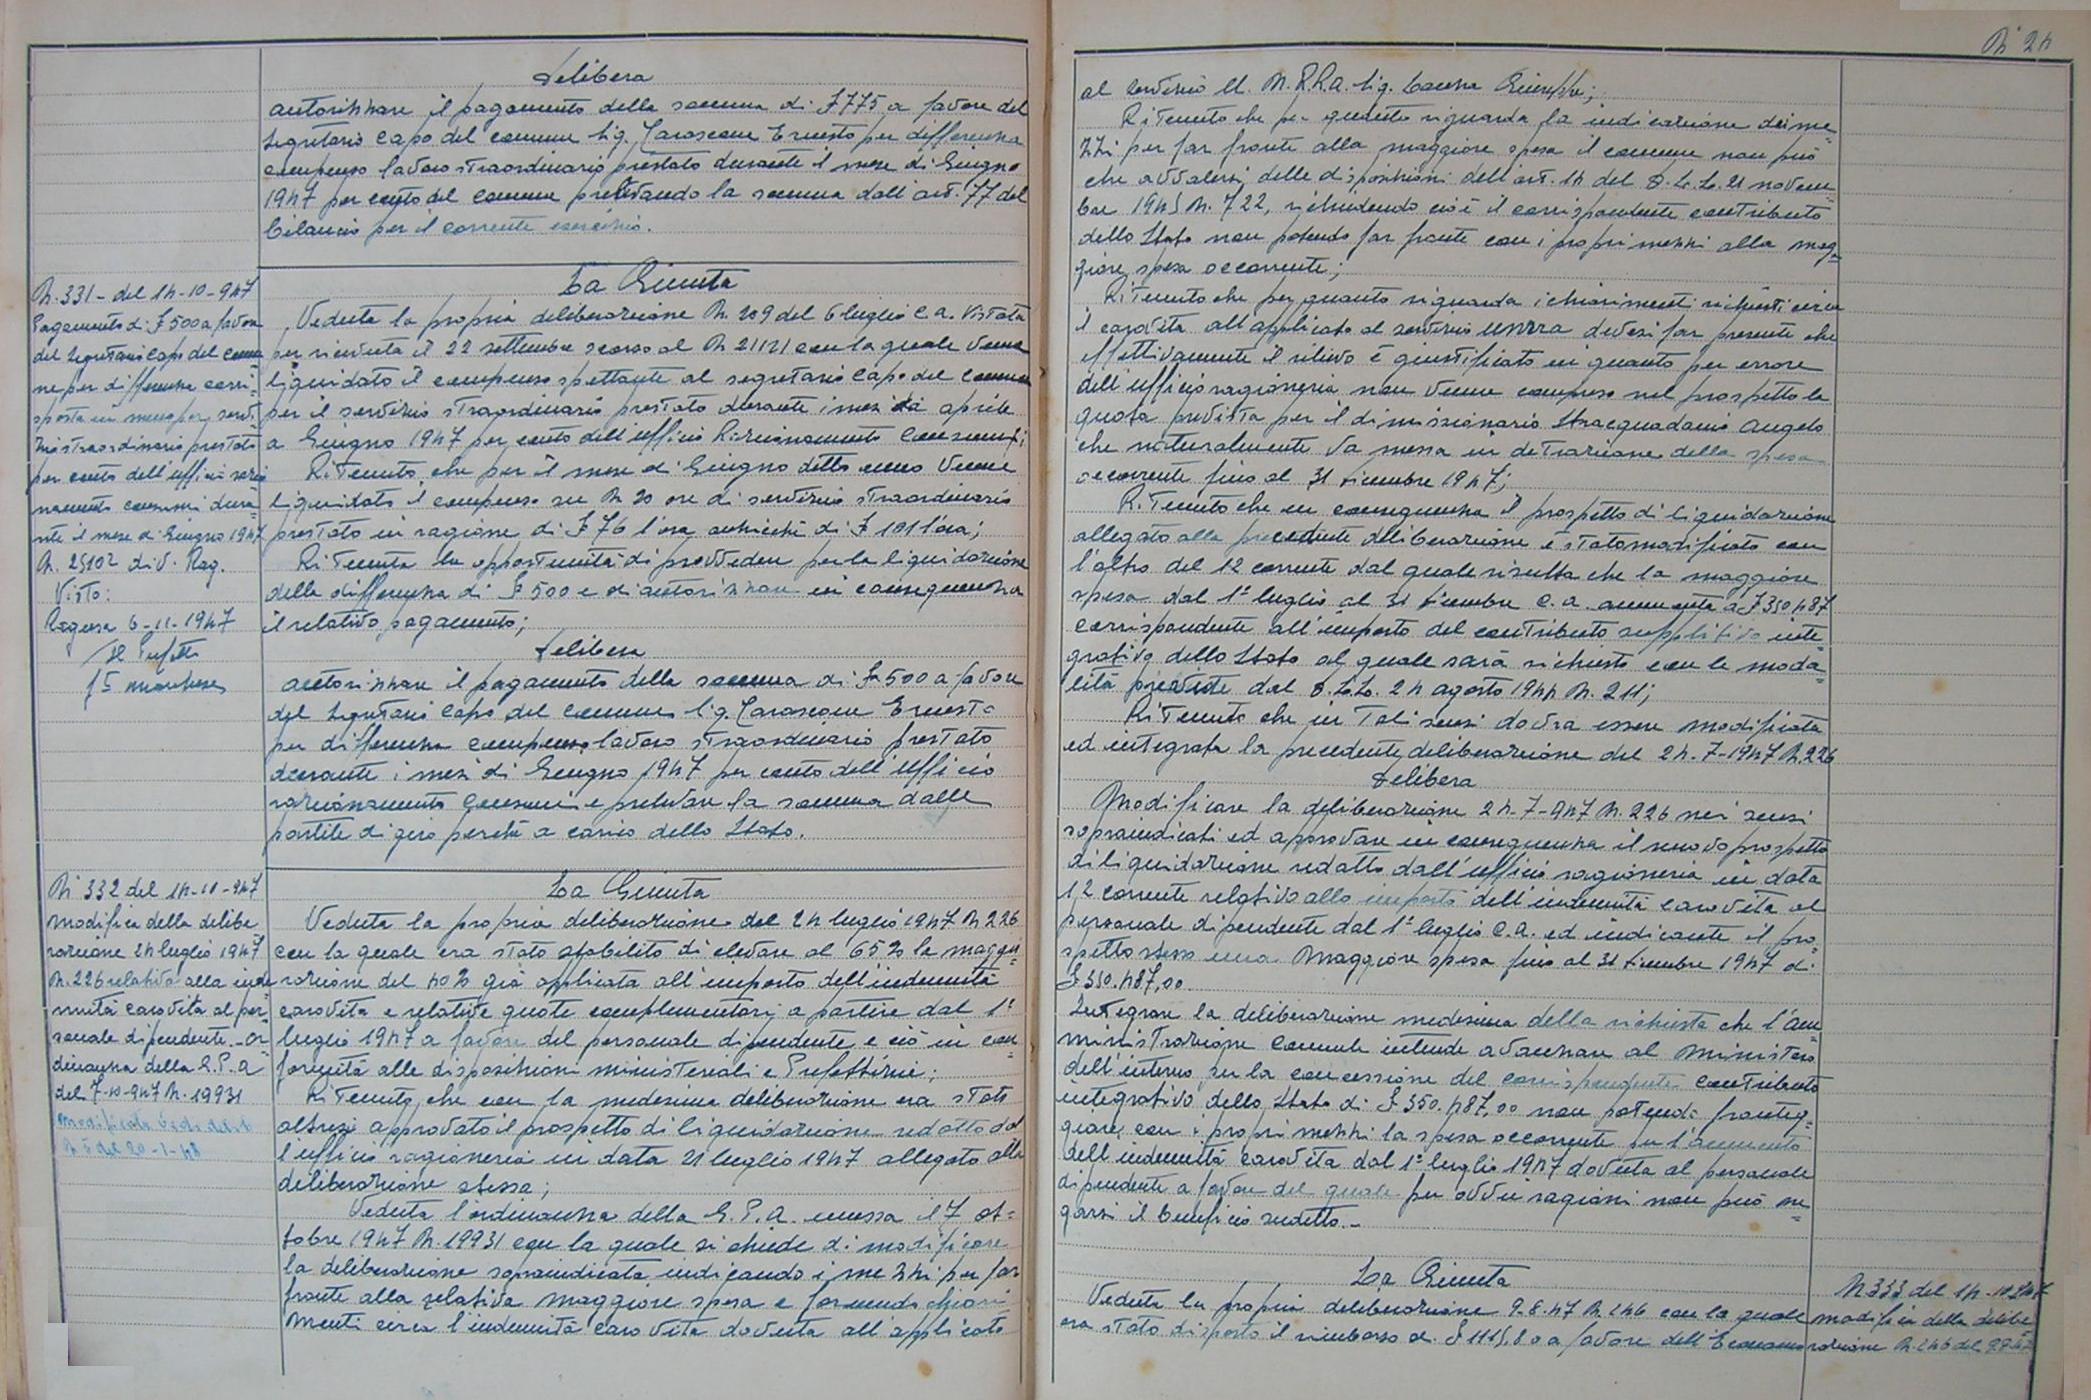 Delibera
autorizzare il pagamento della somma di £ 775 a favore del
Segretario Capo del comune Sig. Tarascone Ernesto per differenza
compenso lavoro straordinario prestato durante il mese di Giugno
1947 per conto del comune prelevando la somma dall'art. 77 del
bilancio per il corrente esercizio.
N. 331 - del 14-10-947
Pagamento di £ 500 a favore
del Segretario Capo del comu
ne per differenza corri=
sposta in meno per servi=
zio straordinario prestato
per conto dell'ufficio razio
namento consumi duran=
te il mese di Giugno 1947
N. 25102 div. Rag.
Visto:
Ragusa 6-11-1947
Il Prefetto
La Giunta
Veduta la propria deliberazione N. 209 del 6 luglio c.a. vistata
per ricevuta il 22 settembre scorso al N. 21121 con la quale venne
liquidato il compenso spettante al segretario capo del comune
per il servizio straordinario prestato durante i mesi da aprile
a Giugno 1947 per conto dell'ufficio Razionamento Consumi;
Ritenuto che per il mese di Giugno detto anno venne
liquidato il compenso su N. 20 ore di servizio straordinario
prestato in ragione di £ 76 l'ora anzicchè di £ 101 l'ora;
Ritenuta la opportunità di provvedere per la liquidazione
della differenza di £ 500 e di autorizzare in conseguenza
il relativo pagamento;
Delibera
autorizzare il pagamento della somma di £ 500 a favore
del Segretario Capo del comune Sig. Tarascone Ernesto
per differenza compenso lavoro straordinario prestato
durante i mesi di Giugno 1947 per conto dell'Ufficio
razionamento Consumi e prelevare la somma dalle
partite di giro perchè a carico dello Stato.
N. 332 del 14-10-947
modifica della delibe
razione 24 luglio 1947
N. 226 relativa alla inden
nità carovita al per=
sonale dipendente - or
dinanza della G.P.A
del 7-10-947 N. 19931
modificata Vedi delib
N. 5 del 20-1-48
La Giunta
Veduta la propria deliberazione del 24 luglio 1947 N. 226
con la quale era stato stabilito di elevare al 65% la maggio=
razione del 40% già applicata all'importo dell'indennità
carovita e relative quote complementari a partire dal 1°
luglio 1947 a favore del personale dipendente e ciò in con=
formità alle disposizioni ministeriali e Prefettizie;
Ritenuto che con la medesima deliberazione era stato
altresì approvato il prospetto di liquidazione redatto dal
l'ufficio ragioneria in data 21 luglio 1947 allegato alla
deliberazione stessa;
Veduta l'ordinanza della G.P.A. emessa il 7 ot=
tobre 1947 N. 19931 con la quale si chiede di modificare
la deliberazione sopraindicata indicando i mezzi per far
fronte alla relativa maggiore spesa e fornendo chiari
menti circa l'indennità caro vita dovuta all'applicato
N. 24
al servizio U.N.R.R.A. Sig. Causa Giuseppe;
Ritenuto che per quanto riguarda la indicazione dei me=
zzi per far fronte alla maggiore spesa il comune non può
che avvalersi delle disposizioni dell'art. 14 del D.L.L. 21 novem=
bre 1945 N. 722, richiedendo cioè il corrispondente contributo
dello Stato non potendo far fronte con i propri mezzi alla mag=
giore spesa occorrente;
Ritenuto che per quanto riguarda i chiarimenti richiesti circa
il carovita all'applicato al servizio UNRRA devesi far presente che
effettivamente il rilievo è giustificato in quanto per errore
dell'ufficio ragioneria non venne compreso nel prospetto la
quota prevista per il dimissionario Stracquadanio Angelo
che naturalmente va messa in detrazione della spesa
occorrente fino al 31 dicembre 1947;
Ritenuto che in conseguenza il prospetto di liquidazione
allegato alla precedente deliberazione è stato modificato con
l'altro del 12 corrente dal quale risulta che la maggiore
spesa dal 1° luglio al 31 dicembre c.a. ammonta a £ 350.487
corrispondente all'importo del contributo suppletivo inte
grativo dello Stato al quale sarà richiesto con le moda=
lità previste dal D.L.L. 24 agosto 1944 N. 211;
Ritenuto che in tali sensi dovrà essere modificata
ed integrata la precedente deliberazione del 24-7-1947 N. 226
Delibera
Modificare la deliberazione 24-7-947 N. 226 nei sensi
sopraindicati ed approvare in conseguenza il nuovo prospetto
di liquidazione redatto dall'ufficio ragioneria in data
12 corrente relativo allo importo dell'indennità carovita al
personale dipendente dal 1° luglio c.a. ed indicante il pro
spetto stesso una maggiore spesa fino al 31 dicembre 1947 di
£ 350.487,00
Integrare la deliberazione medesima della richiesta che l'am
ministrazione comunale intende avanzare al Ministero
dell'interno per la concessione del corrispondente contributo
integrativo dello Stato di £ 350.487,00 non potendo fronteg=
giare con i propri mezzi la spesa occorrente per l'aumento
dell'indennità carovita dal 1° luglio 1947 dovuta al personale
dipendente a favore del quale per ovvie ragioni non può ne=
garsi il beneficio sudetto.-
La Giunta
Veduta la propria deliberazione 9-8-47 N. 246 con la quale
era stato disposto il rimborso di £ 1115,80 a favore dell'Economo
N. 333 del 14-10-947
modifica della delibe
razione N. 246 del 9-8-47